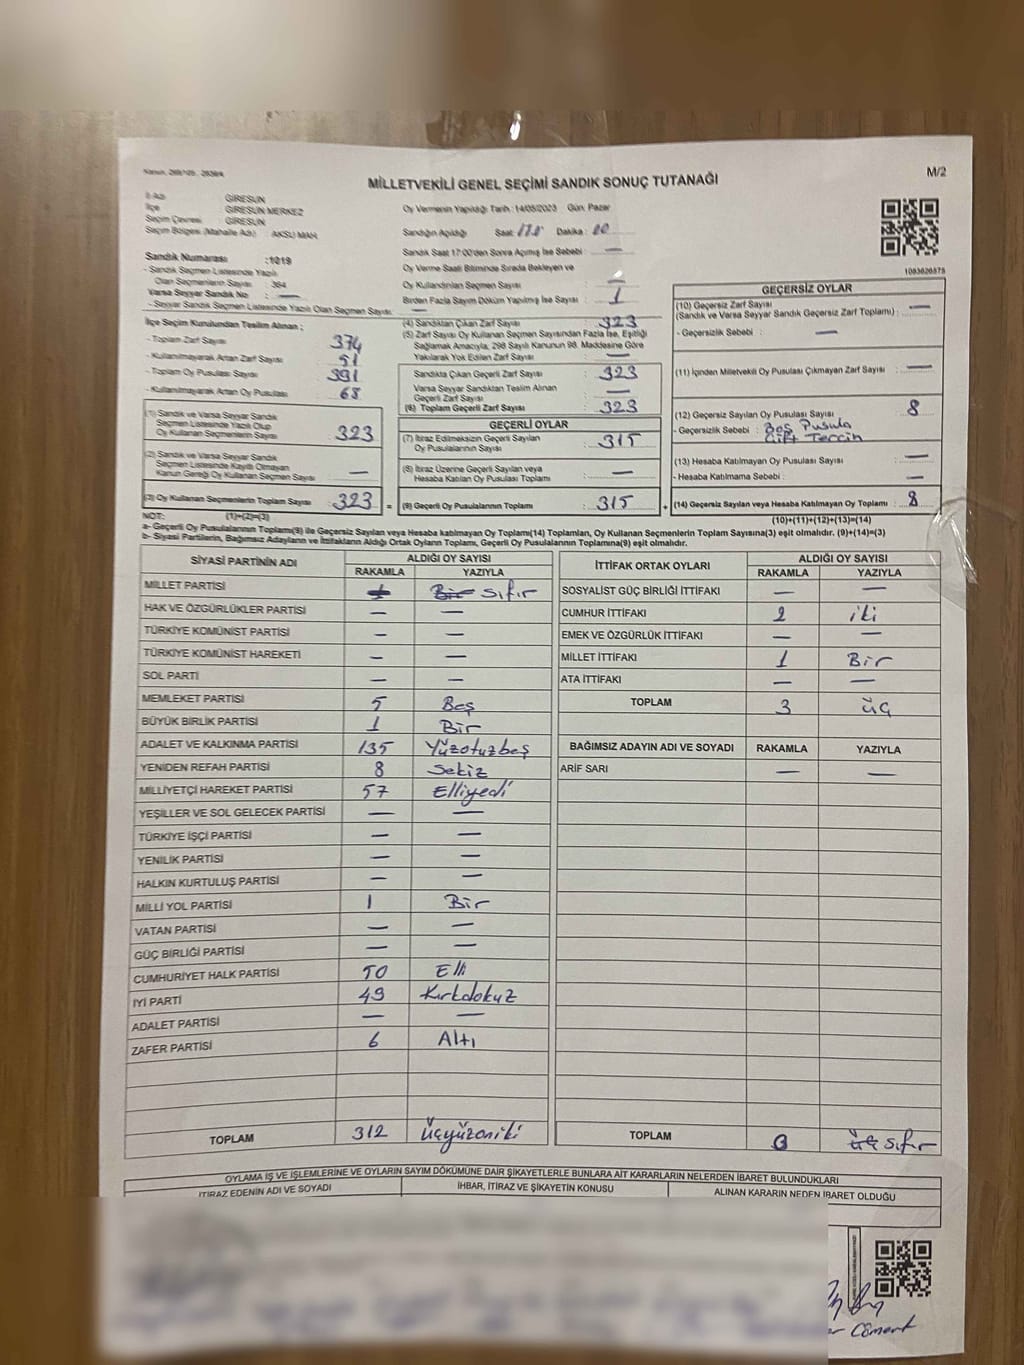 Kanun, 298/105 , 2839/4
M/2
MİLLETVEKİLİ GENEL SEÇİMİ SANDIK SONUÇ TUTANAĞI
İl Adı : GİRESUN
İlçe : GİRESUN MERKEZ
Seçim Çevresi : GİRESUN
Seçim Bölgesi (Mahalle Adı) : AKSU MAH.
Sandık Numarası :1019
- Sandık Seçmen Listesinde Yazılı
Olan Seçmenlerin Sayısı : 364
Varsa Seyyar Sandık No : —
- Seyyar Sandık Seçmen Listesinde Yazılı Olan Seçmen Sayısı : —
Oy Vermenin Yapıldığı Tarih :14/05/2023 Gün: Pazar
Sandığın Açıldığı Saat: Dakika : 00
Sandık Saat 17:00'den Sonra Açılmış İse Sebebi : —
Oy Verme Saati Bitiminde Sırada Bekleyen ve
Oy Kullandırılan Seçmen Sayısı : —
Birden Fazla Sayım Döküm Yapılmış İse Sayısı : 1
1083626575
İlçe Seçim Kurulundan Teslim Alınan ;
- Toplam Zarf Sayısı : 374
- Kullanılmayarak Artan Zarf Sayısı : 51
- Toplam Oy Pusulası Sayısı : 391
- Kullanılmayarak Artan Oy Pusulası : 68
(1) Sandık ve Varsa Seyyar Sandık
Seçmen Listesinde Yazılı Olup
Oy Kullanan Seçmenlerin Sayısı : 323
(2) Sandık ve Varsa Seyyar Sandık
Seçmen Listesinde Kayıtlı Olmayan
Kanun Gereği Oy Kullanan Seçmen Sayısı : —
(3) Oy Kullanan Seçmenlerin Toplam Sayısı : 323 =
(1)+(2)=(3)
(4) Sandıktan Çıkan Zarf Sayısı : 323
(5) Zarf Sayısı Oy Kullanan Seçmen Sayısından Fazla İse, Eşitliği
Sağlamak Amacıyla, 298 Sayılı Kanunun 98. Maddesine Göre
Yakılarak Yok Edilen Zarf Sayısı : —
Sandıkta Çıkan Geçerli Zarf Sayısı : 323
Varsa Seyyar Sandıktan Teslim Alınan
Geçerli Zarf Sayısı : —
(6) Toplam Geçerli Zarf Sayısı : 323
GEÇERLİ OYLAR
(7) İtiraz Edilmeksizin Geçerli Sayılan
Oy Pusulalarının Sayısı : 315
(8) İtiraz Üzerine Geçerli Sayılan veya
Hesaba Katılan Oy Pusulası Toplamı : —
(9) Geçerli Oy Pusulalarının Toplamı : 315 +
GEÇERSİZ OYLAR
(10) Geçersiz Zarf Sayısı
(Sandık ve Varsa Seyyar Sandık Geçersiz Zarf Toplamı) : —
- Geçersizlik Sebebi : —
(11) İçinden Milletvekili Oy Pusulası Çıkmayan Zarf Sayısı : —
(12) Geçersiz Sayılan Oy Pusulası Sayısı : 8
- Geçersizlik Sebebi : Boş Pusula
Çift Tercih
(13) Hesaba Katılmayan Oy Pusulası Sayısı : —
- Hesaba Katılmama Sebebi : —
(14) Geçersiz Sayılan veya Hesaba Katılmayan Oy Toplamı : 8
(10)+(11)+(12)+(13)=(14)
NOT:
a- Geçerli Oy Pusulalarının Toplamı(9) ile Geçersiz Sayılan veya Hesaba katılmayan Oy Toplamı(14) Toplamları, Oy Kullanan Seçmenlerin Toplam Sayısına(3) eşit olmalıdır. (9)+(14)=(3)
b- Siyasi Partilerin, Bağımsız Adayların ve İttifakların Aldığı Ortak Oyların Toplamı, Geçerli Oy Pusulalarının Toplamına(9) eşit olmalıdır.
SİYASİ PARTİNİN ADI ALDIĞI OY SAYISI
RAKAMLA YAZIYLA
MİLLET PARTİSİ 1 Bir sıfır
HAK VE ÖZGÜRLÜKLER PARTİSİ — —
TÜRKİYE KOMÜNİST PARTİSİ — —
TÜRKİYE KOMÜNİST HAREKETİ — —
SOL PARTİ — —
MEMLEKET PARTİSİ 5 Beş
BÜYÜK BİRLİK PARTİSİ 1 Bir
ADALET VE KALKINMA PARTİSİ 135 Yüzotuzbeş
YENİDEN REFAH PARTİSİ 8 Sekiz
MİLLİYETÇİ HAREKET PARTİSİ 57 Elliyedi
YEŞİLLER VE SOL GELECEK PARTİSİ — —
TÜRKİYE İŞÇİ PARTİSİ — —
YENİLİK PARTİSİ — —
HALKIN KURTULUŞ PARTİSİ — —
MİLLİ YOL PARTİSİ 1 Bir
VATAN PARTİSİ — —
GÜÇ BİRLİĞİ PARTİSİ — —
CUMHURİYET HALK PARTİSİ 50 Elli
İYİ PARTİ 49 Kırkdokuz
ADALET PARTİSİ — —
ZAFER PARTİSİ 6 Altı
TOPLAM 312 Üçyüzoniki
İTTİFAK ORTAK OYLARI ALDIĞI OY SAYISI
RAKAMLA YAZIYLA
SOSYALİST GÜÇ BİRLİĞİ İTTİFAKI — —
CUMHUR İTTİFAKI 2 iki
EMEK VE ÖZGÜRLÜK İTTİFAKI — —
MİLLET İTTİFAKI 1 Bir
ATA İTTİFAKI — —
TOPLAM 3 üç
BAĞIMSIZ ADAYIN ADI VE SOYADI RAKAMLA YAZIYLA
ARİF SARI — —
TOPLAM 0 üç sıfır
OYLAMA İŞ VE İŞLEMLERİNE VE OYLARIN SAYIM DÖKÜMÜNE DAİR ŞİKAYETLERLE BUNLARA AİT KARARLARIN NELERDEN İBARET BULUNDUKLARI
İTİRAZ EDENİN ADI VE SOYADI İHBAR, İTİRAZ VE ŞİKAYETİN KONUSU ALINAN KARARIN NEDEN İBARET OLDUĞU
Cömert